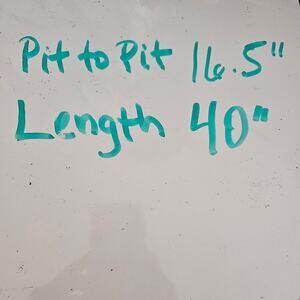 Pit to Pit 16.5"
Length 40"